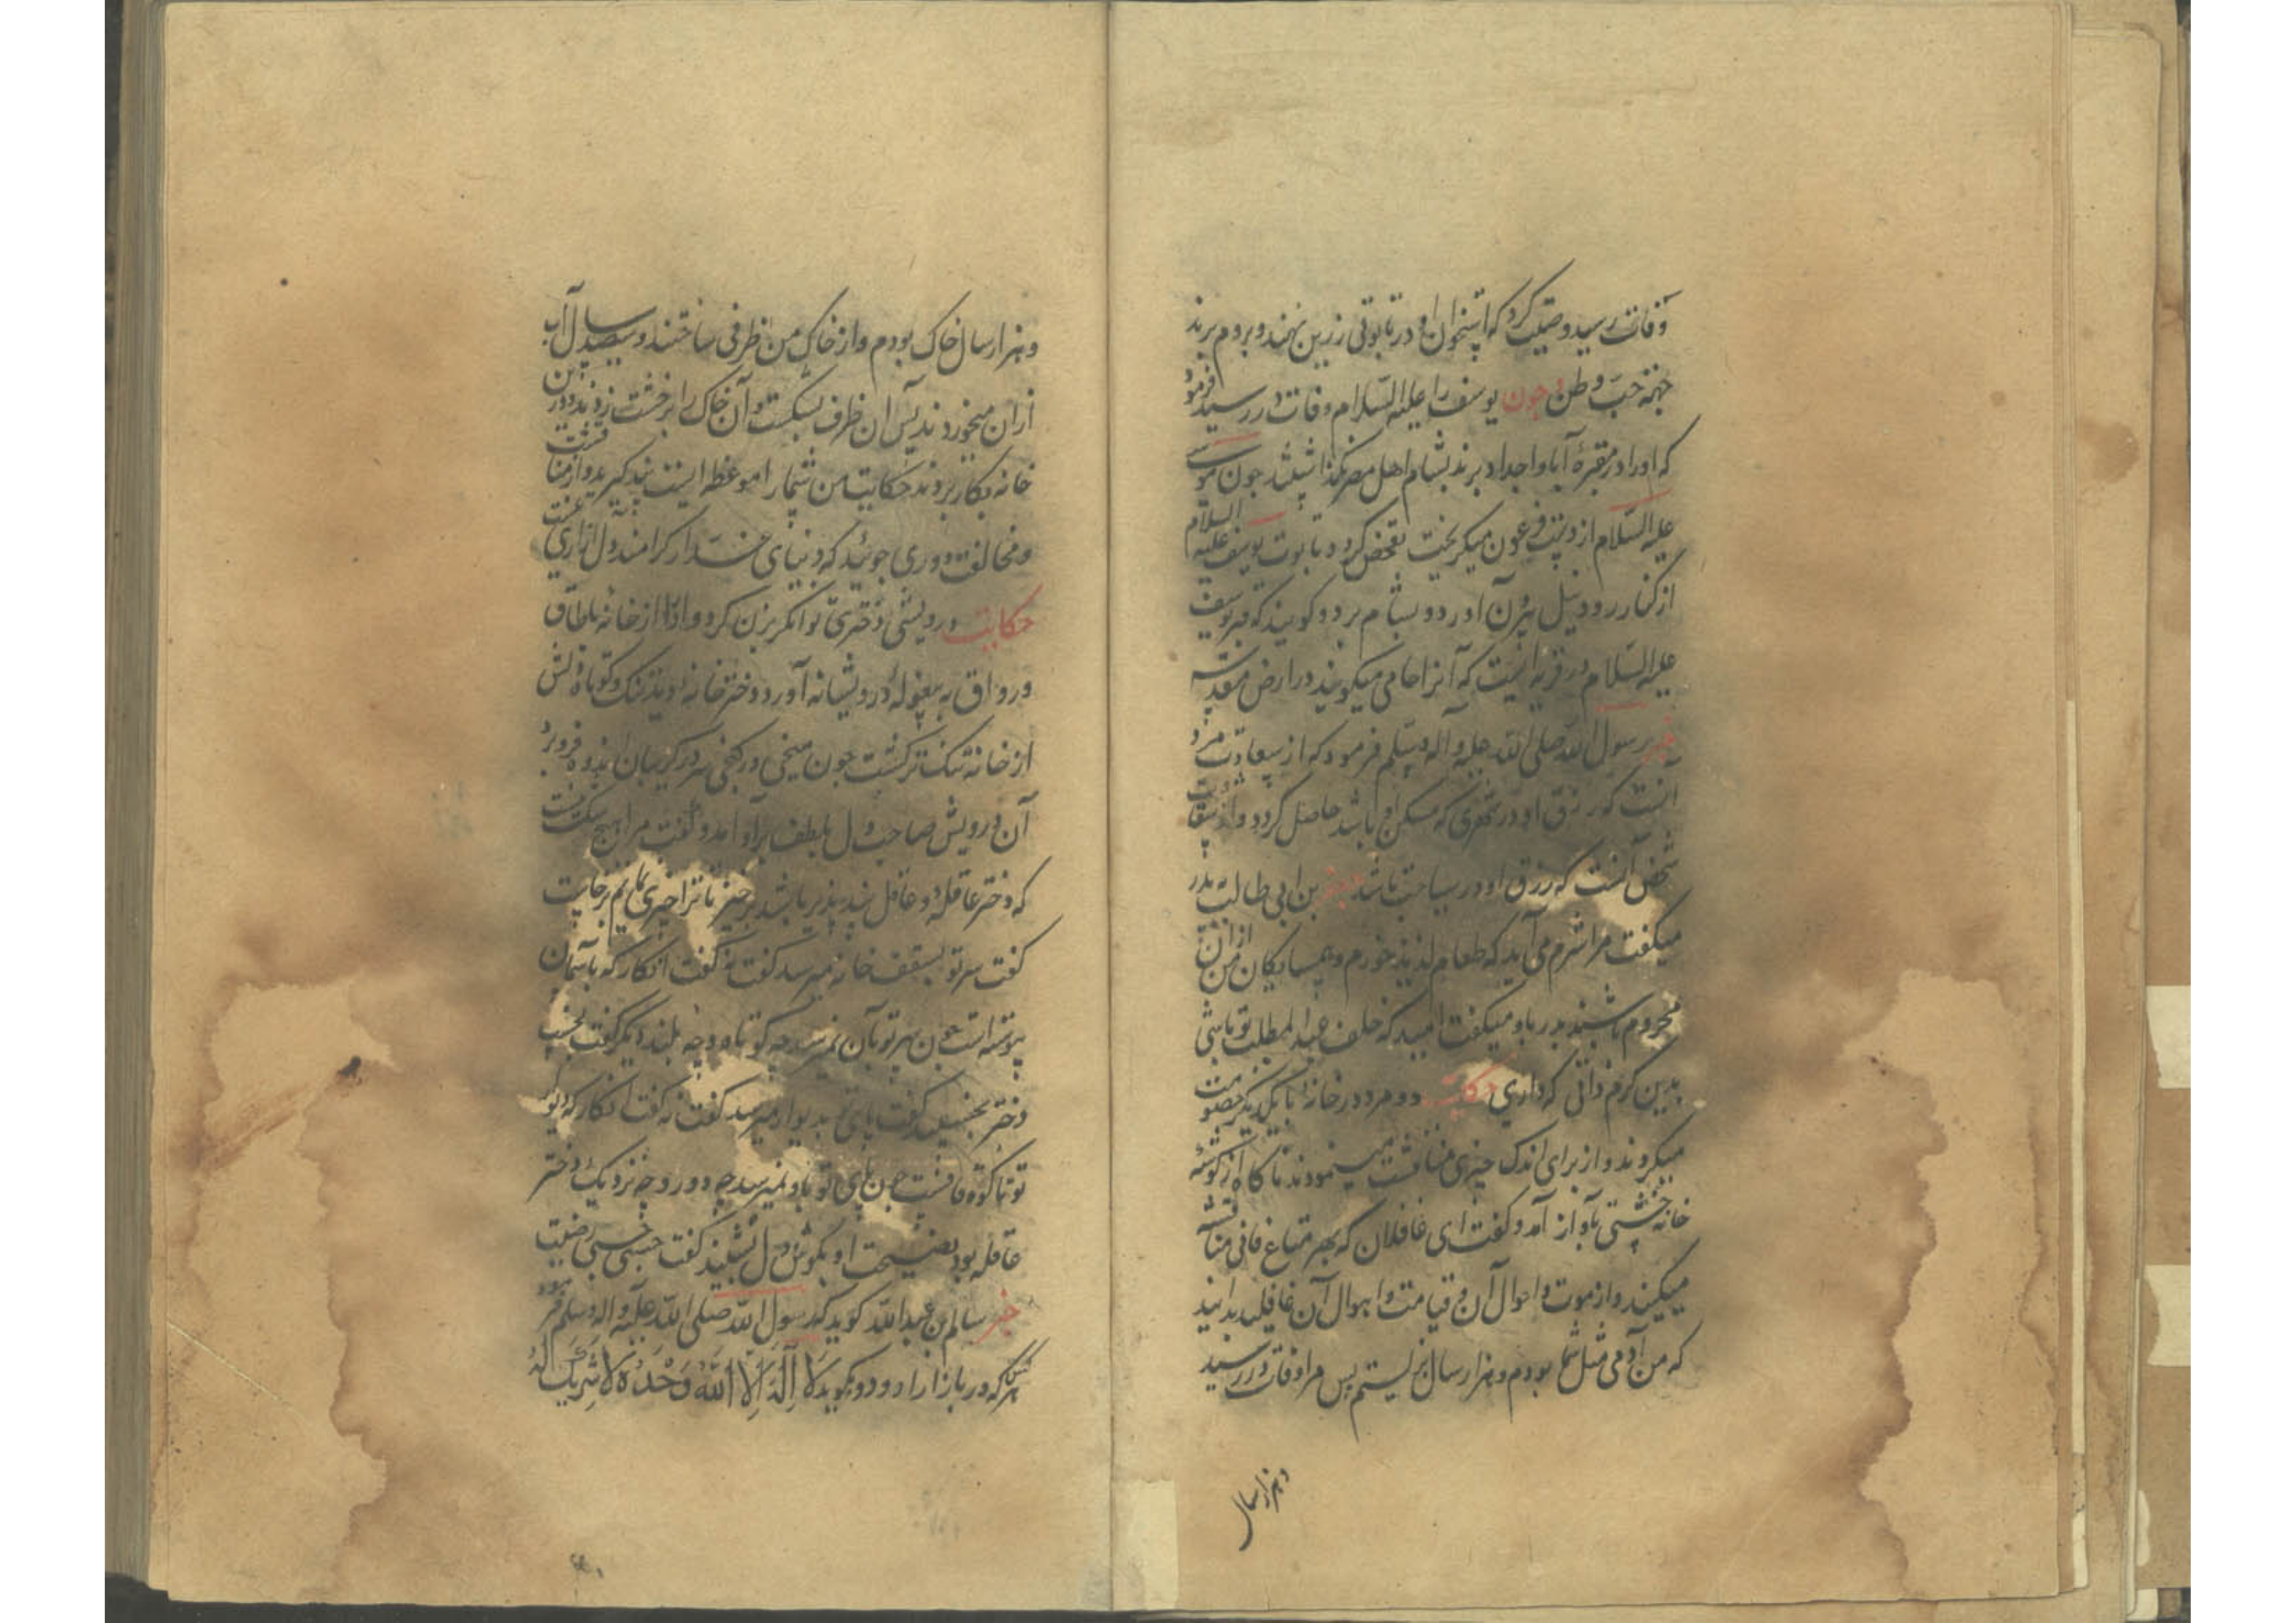 وفات رسید وصیت کرد که استخوان او در تابوتی زرین نهند و بروم برند
جهة حب وطن و چون یوسف را علیه السلام وفات در رسید فرمود
که او را در مقبرهٔ آبا و اجداد برند بشام اهل مصر نگذاشتند چون موسی
علیه السلام از دست فرعون میگریخت تفحص کرد و تابوت یوسف علیه السلام
از کنار رود نیل بیرون آورد و بشام برد و گویند که قبر یوسف
علیه السلام در قریه ایست که آنرا حامی میگویند در ارض مقدسه
خبر رسول الله صلی الله علیه و آله وسلم فرمود که از سعادت مرد
آنست که رزق او در شهری که مسکن او باشد حاصل گردد و از شقاوت
شخص آنست که رزق او در سیاحت باشد بن ابی طالب پدر
میگفت مرا شرم می آید که طعام لذیذ خورم و همسایگان من از آن
محروم باشند پدر باو میگفت امید که خلف عبد المطلب تو باشی
بدین کرم ذاتی که داری حکایت دو مرد در خانهٔ با یکدیگر خصومت
میکردند و از برای اندک چیزی مناقشت مینمودند ناگاه از گوشهٔ
خانه خشتی بآواز آمد و گفت ای غافلان که بهر متاع فانی مناقشه
میکنید و از موت و احوال آن و قیامت و اهوال آن غافلید بدانید
که من آدمی مثل شما بودم و هزار سال بزیستم پس مرا وفات در رسید
و هزار سال
و هزار سال خاک بودم و از خاک من ظرفی ساختند و سیصد سال آب
از آن میخوردند پس آن ظرف بشکست و آن خاک را بر خشت زدند و در این
خانه بکار بردند حکایت من شما را موعظه ایست پند گیرید و از مناقشت
و مخالفت دوری جوئید که دنیای غدار کرا مند دل آزاری نیست
حکایت درویشی دختری توانگر بزن کرد و او را از خانهٔ باطاق
و رواق به بیغولهٔ درویشانه آورد دختر خانهٔ دید تنگ و کوتاه دلش
از خانه تنک تر گشت چون میخی در کنجی سر در گریبان اندوه فرو برد
آن درویش صاحب دل بلطف برآو آمد و گفت مرا هیچ شک نیست
که دختر عاقلهٔ و عاقل پند پذیر باشد برخیز تا ترا چیزی نمایم برخاست
گفت سر تو بسقف خانه میرسد گفت نه گفت انگار که بآسمان
پیوسته است چون سر تو بآن نمیرسد چه کوتاه و چه بلند دیگر گفت بخسب
دختر بخسبید گفت پای تو بدیوار میرسد گفت نه گفت انگار که دیوار
تو تا کوه قافست چون پای تو باو نمیرسد چه دور و چه نزدیک دختر
عاقله بود نصیحت او بگوش دل بشنید گفت حسبی حسبی رضیت
خبر سالم بن عبد الله گوید که رسول الله صلی الله علیه و اله وسلم فرمود
هر که در بازارها رود و بگوید لَا اِلٰهَ اِلَّا اللهُ وَحْدَهُ لَا شَرِيكَ لَهُ